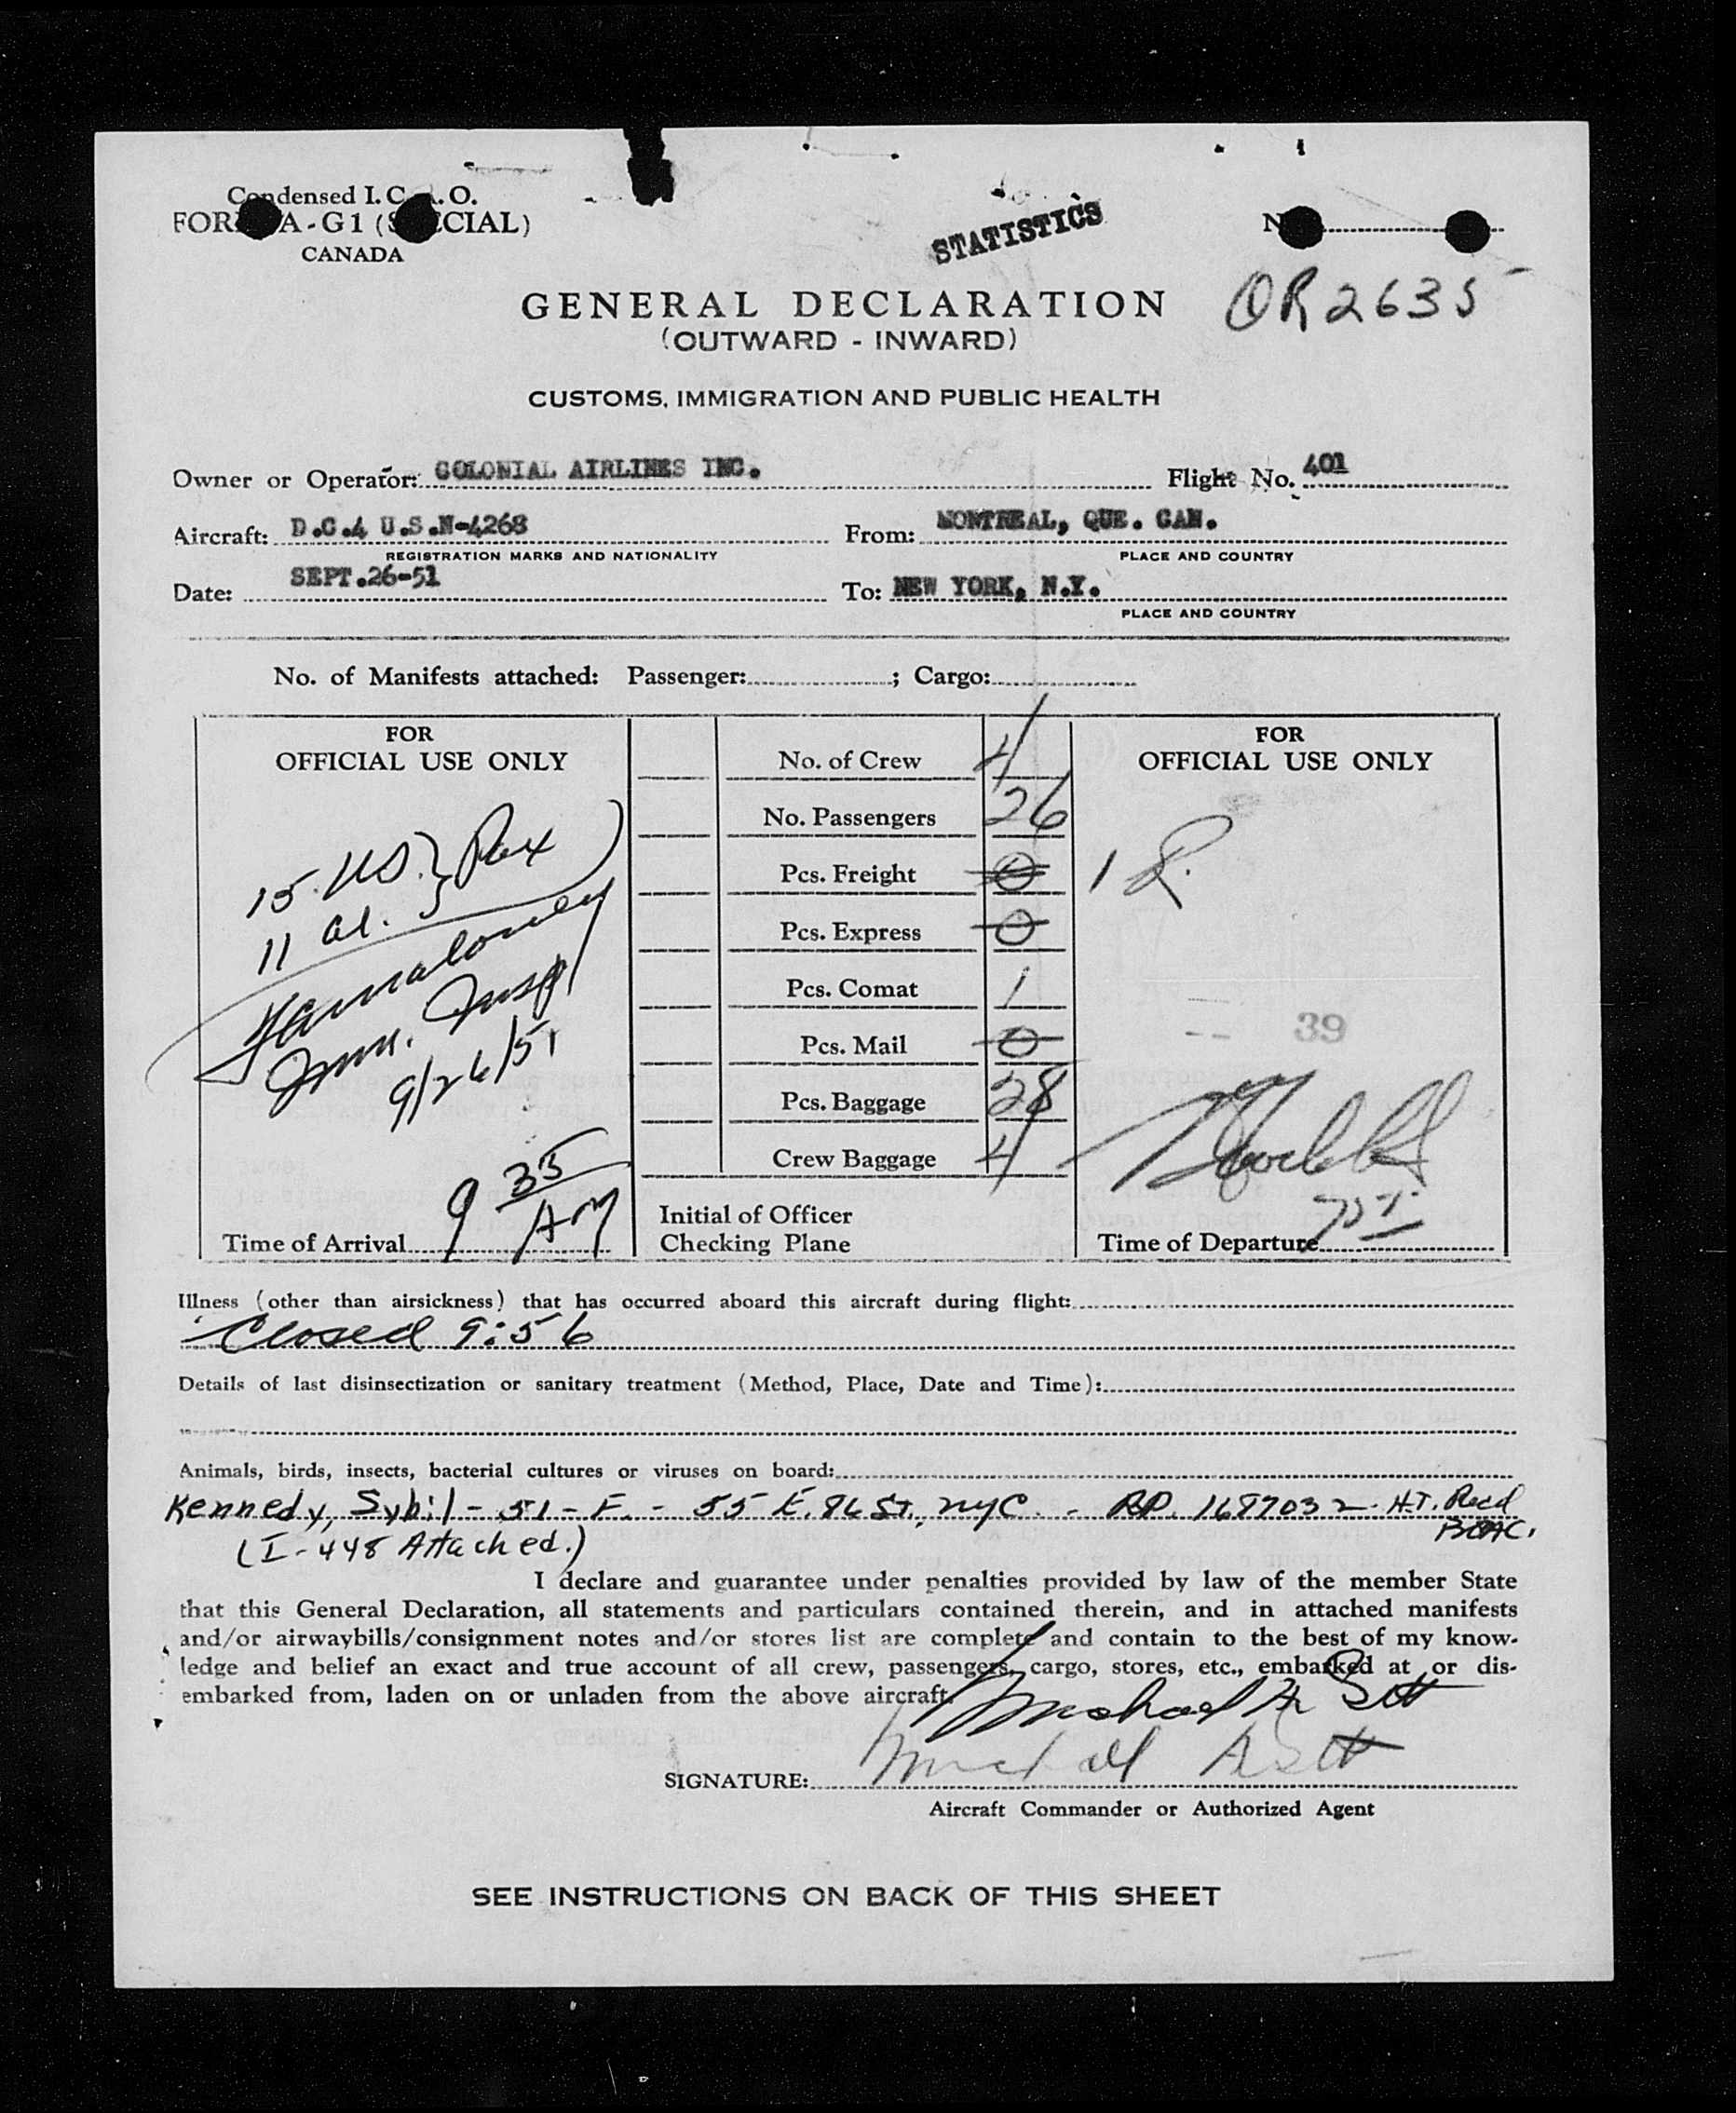 Condensed I.C.A.O.
FORM A-G1 (SPECIAL)
CANADA
STATISTICS
N
OR 2635
GENERAL DECLARATION
(OUTWARD - INWARD)
CUSTOMS, IMMIGRATION AND PUBLIC HEALTH
Owner or Operator: COLONIAL AIRLINES INC. Flight No. 401
Aircraft: D.C.4 U.S.N-4268 From: MONTREAL, QUE. CAN.
REGISTRATION MARKS AND NATIONALITY PLACE AND COUNTRY
Date: SEPT.26-51 To: NEW YORK, N.Y.
PLACE AND COUNTRY
No. of Manifests attached: Passenger: ; Cargo:
FOR
OFFICIAL USE ONLY
15 US. } Pax
11 al.
Imm. Insp
9/26/51
9 35 AM
Time of Arrival
No. of Crew 4
No. Passengers 26
Pcs. Freight 0
Pcs. Express 0
Pcs. Comat 1
Pcs. Mail 0
Pcs. Baggage 28
Crew Baggage 4
Initial of Officer
Checking Plane
FOR
OFFICIAL USE ONLY
1 R.
-- 39
Time of Departure
Illness (other than airsickness) that has occurred aboard this aircraft during flight:
Closed 9:56
Details of last disinsectization or sanitary treatment (Method, Place, Date and Time):
Animals, birds, insects, bacterial cultures or viruses on board:
Kennedy, Sybil - 51 - F. - 55 E. 86 St., NYC. - RP. 1687032 - H.T. Recd
BOAC.
(I-448 Attached.)
I declare and guarantee under penalties provided by law of the member State
that this General Declaration, all statements and particulars contained therein, and in attached manifests
and/or airwaybills/consignment notes and/or stores list are complete and contain to the best of my know-
ledge and belief an exact and true account of all crew, passengers, cargo, stores, etc., embarked at or dis-
embarked from, laden on or unladen from the above aircraft.
SIGNATURE:
Aircraft Commander or Authorized Agent
SEE INSTRUCTIONS ON BACK OF THIS SHEET